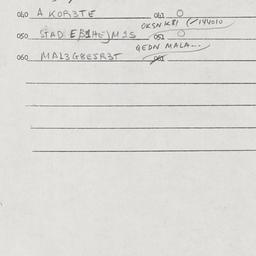 040 A KOR3TE 041 O
OKSNK81 (/14V010
050 STAD EB1HEJM1S 051 O
GEDN MALA...
060 MAL3G8ESR3T 061